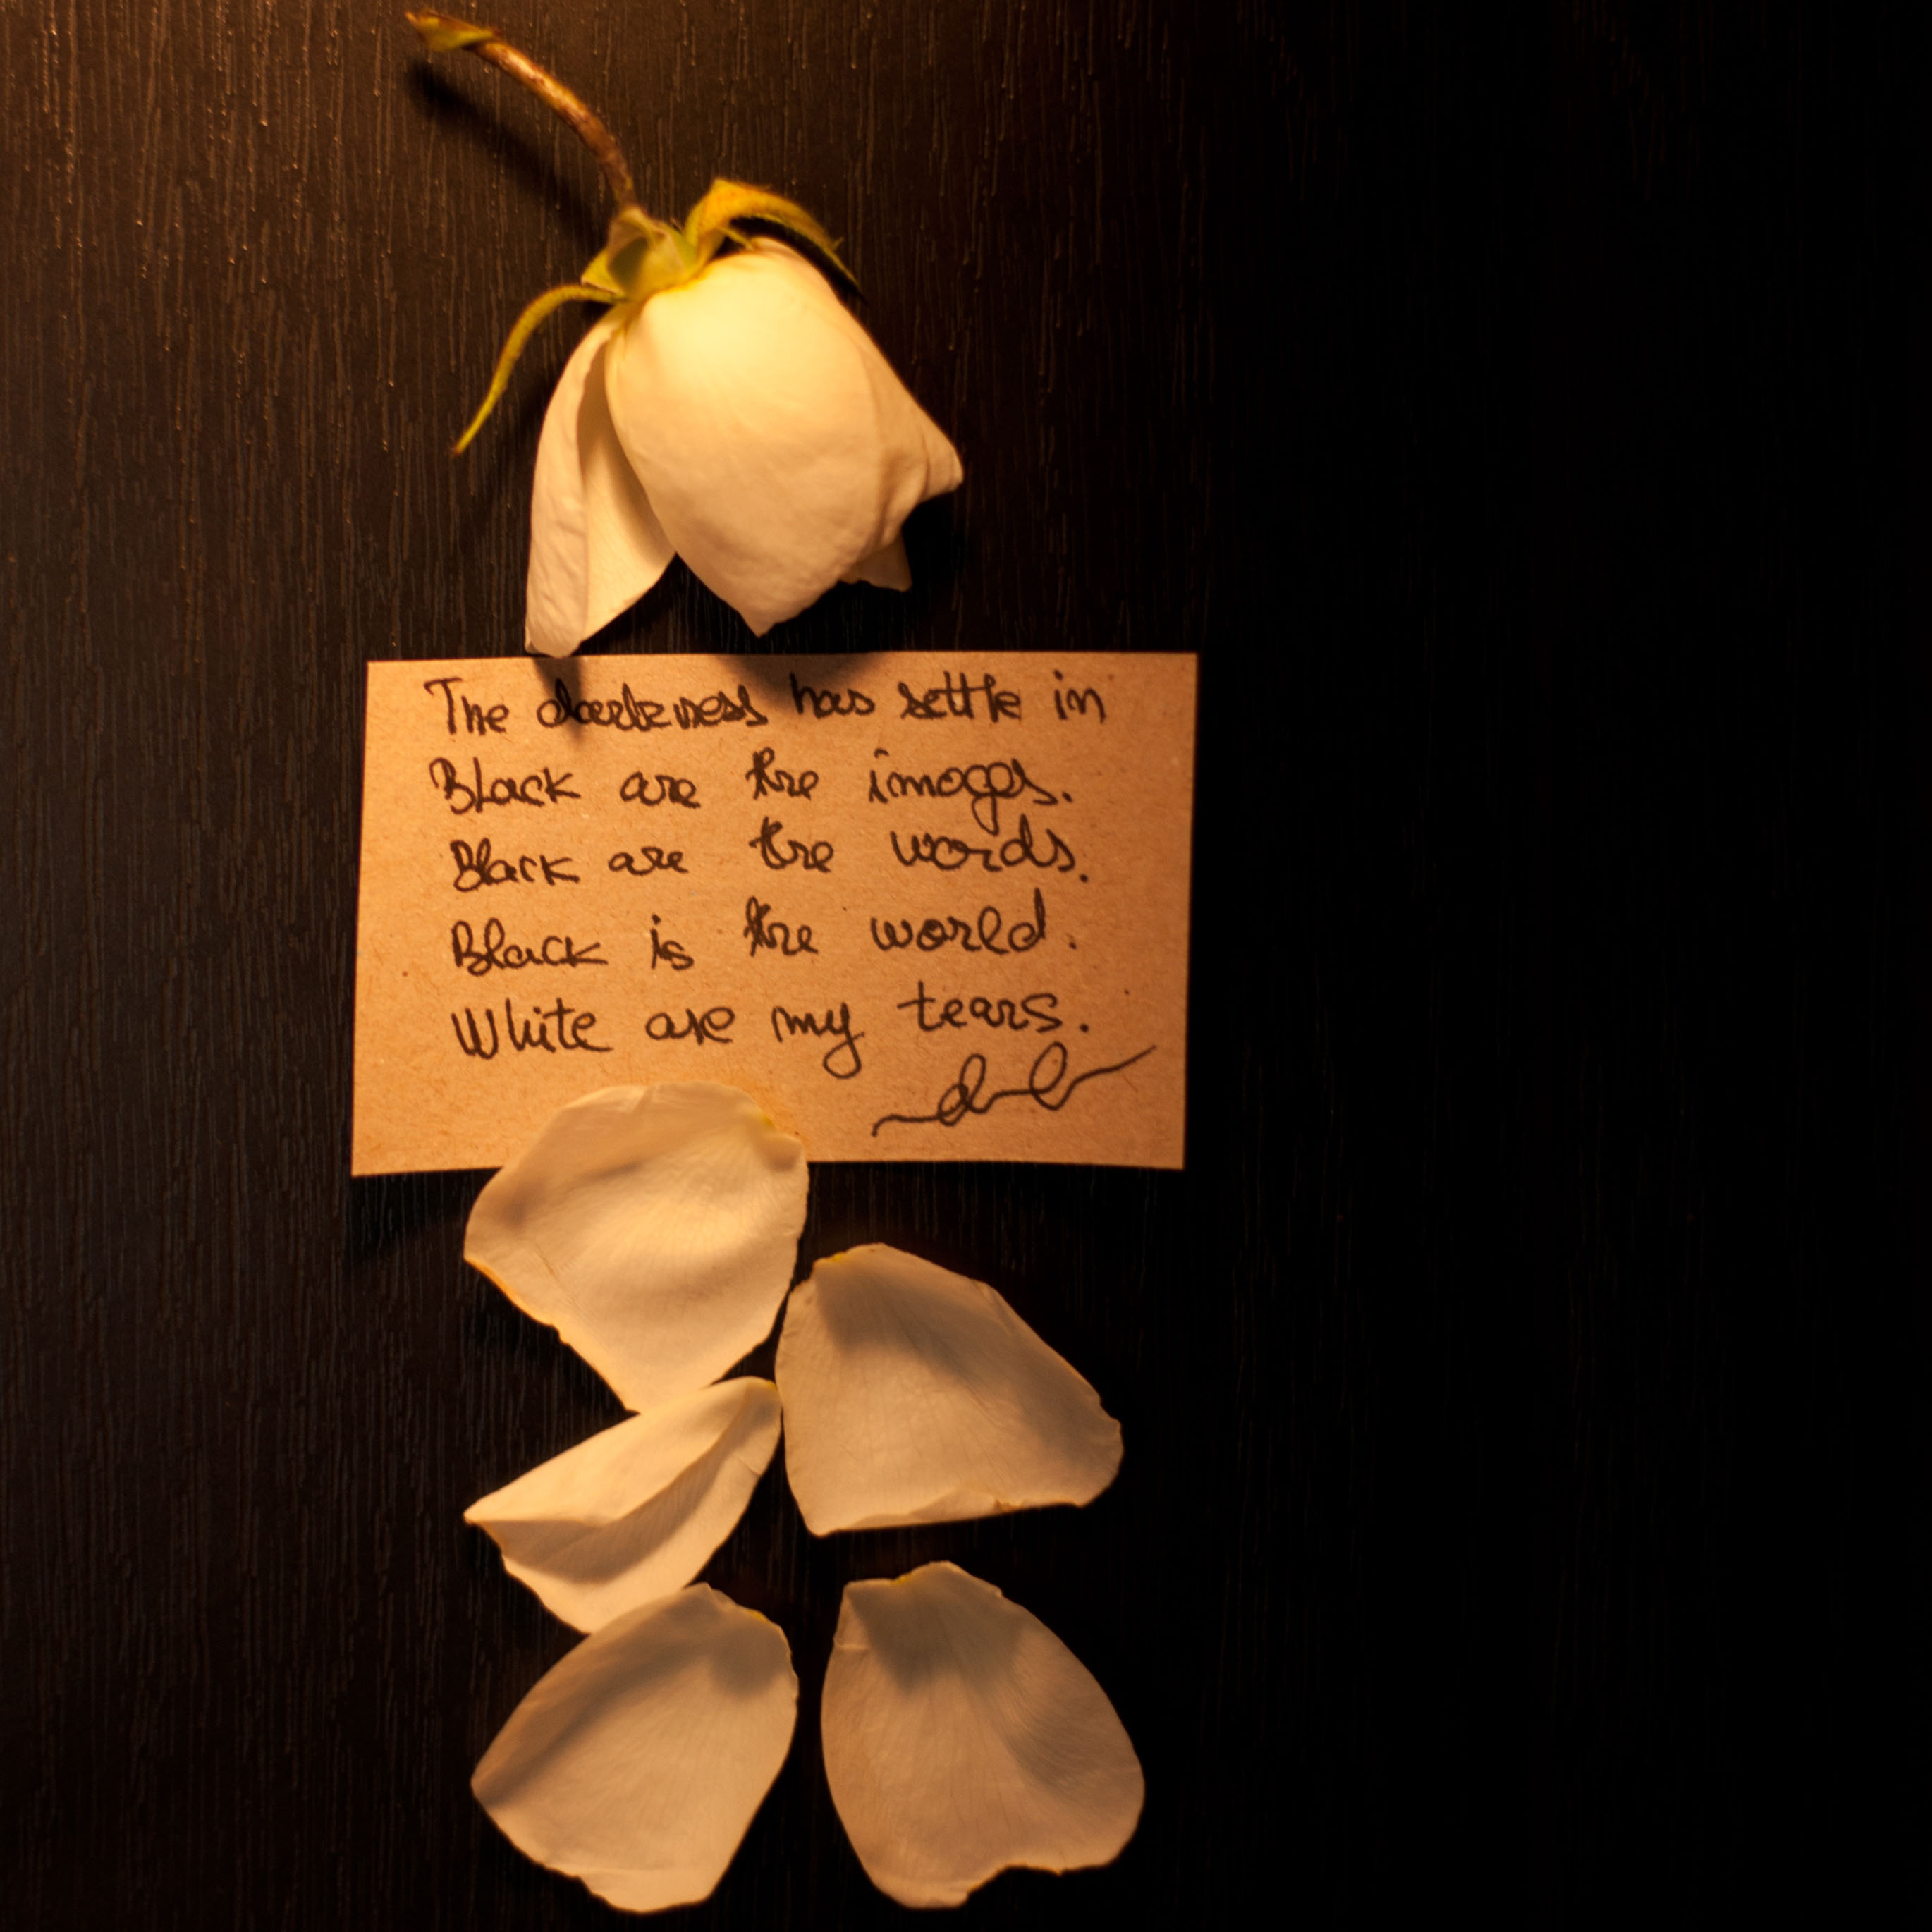 The darkness has settle in
Black are the images.
Black are the words.
Black is the world.
White are my tears.